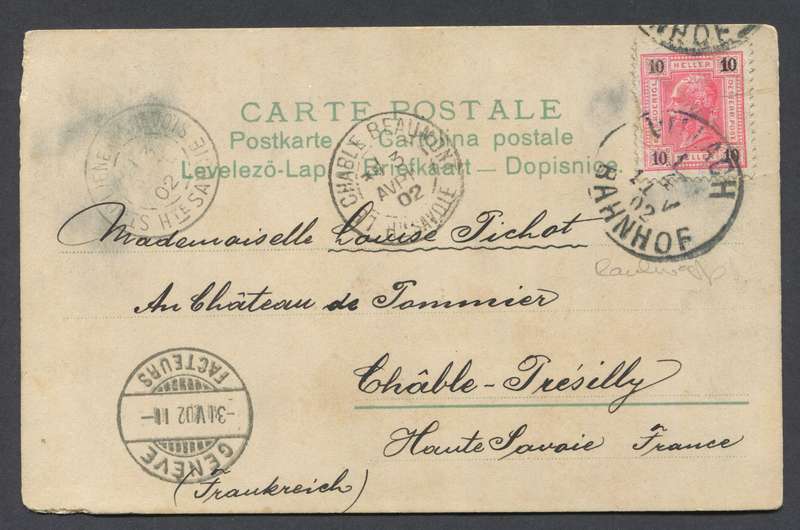 CARTE POSTALE
Postkarte — Cartolina postale
Levelező-Lap — Briefkaart — Dopisnice.
10 HELLER 10
10 10
VILLACH
BAHNHOF
02
BAHNHOF
LE CHABLE BEAUMONT
3
AVRIL
02
HTE SAVOIE
02
HTE SAVOIE
Mademoiselle Louise Pichot
Au Château de Pommier
Châble-Présilly
Haute Savoie France
(Frankreich)
GENÈVE
-3.IV.02
FACTEURS